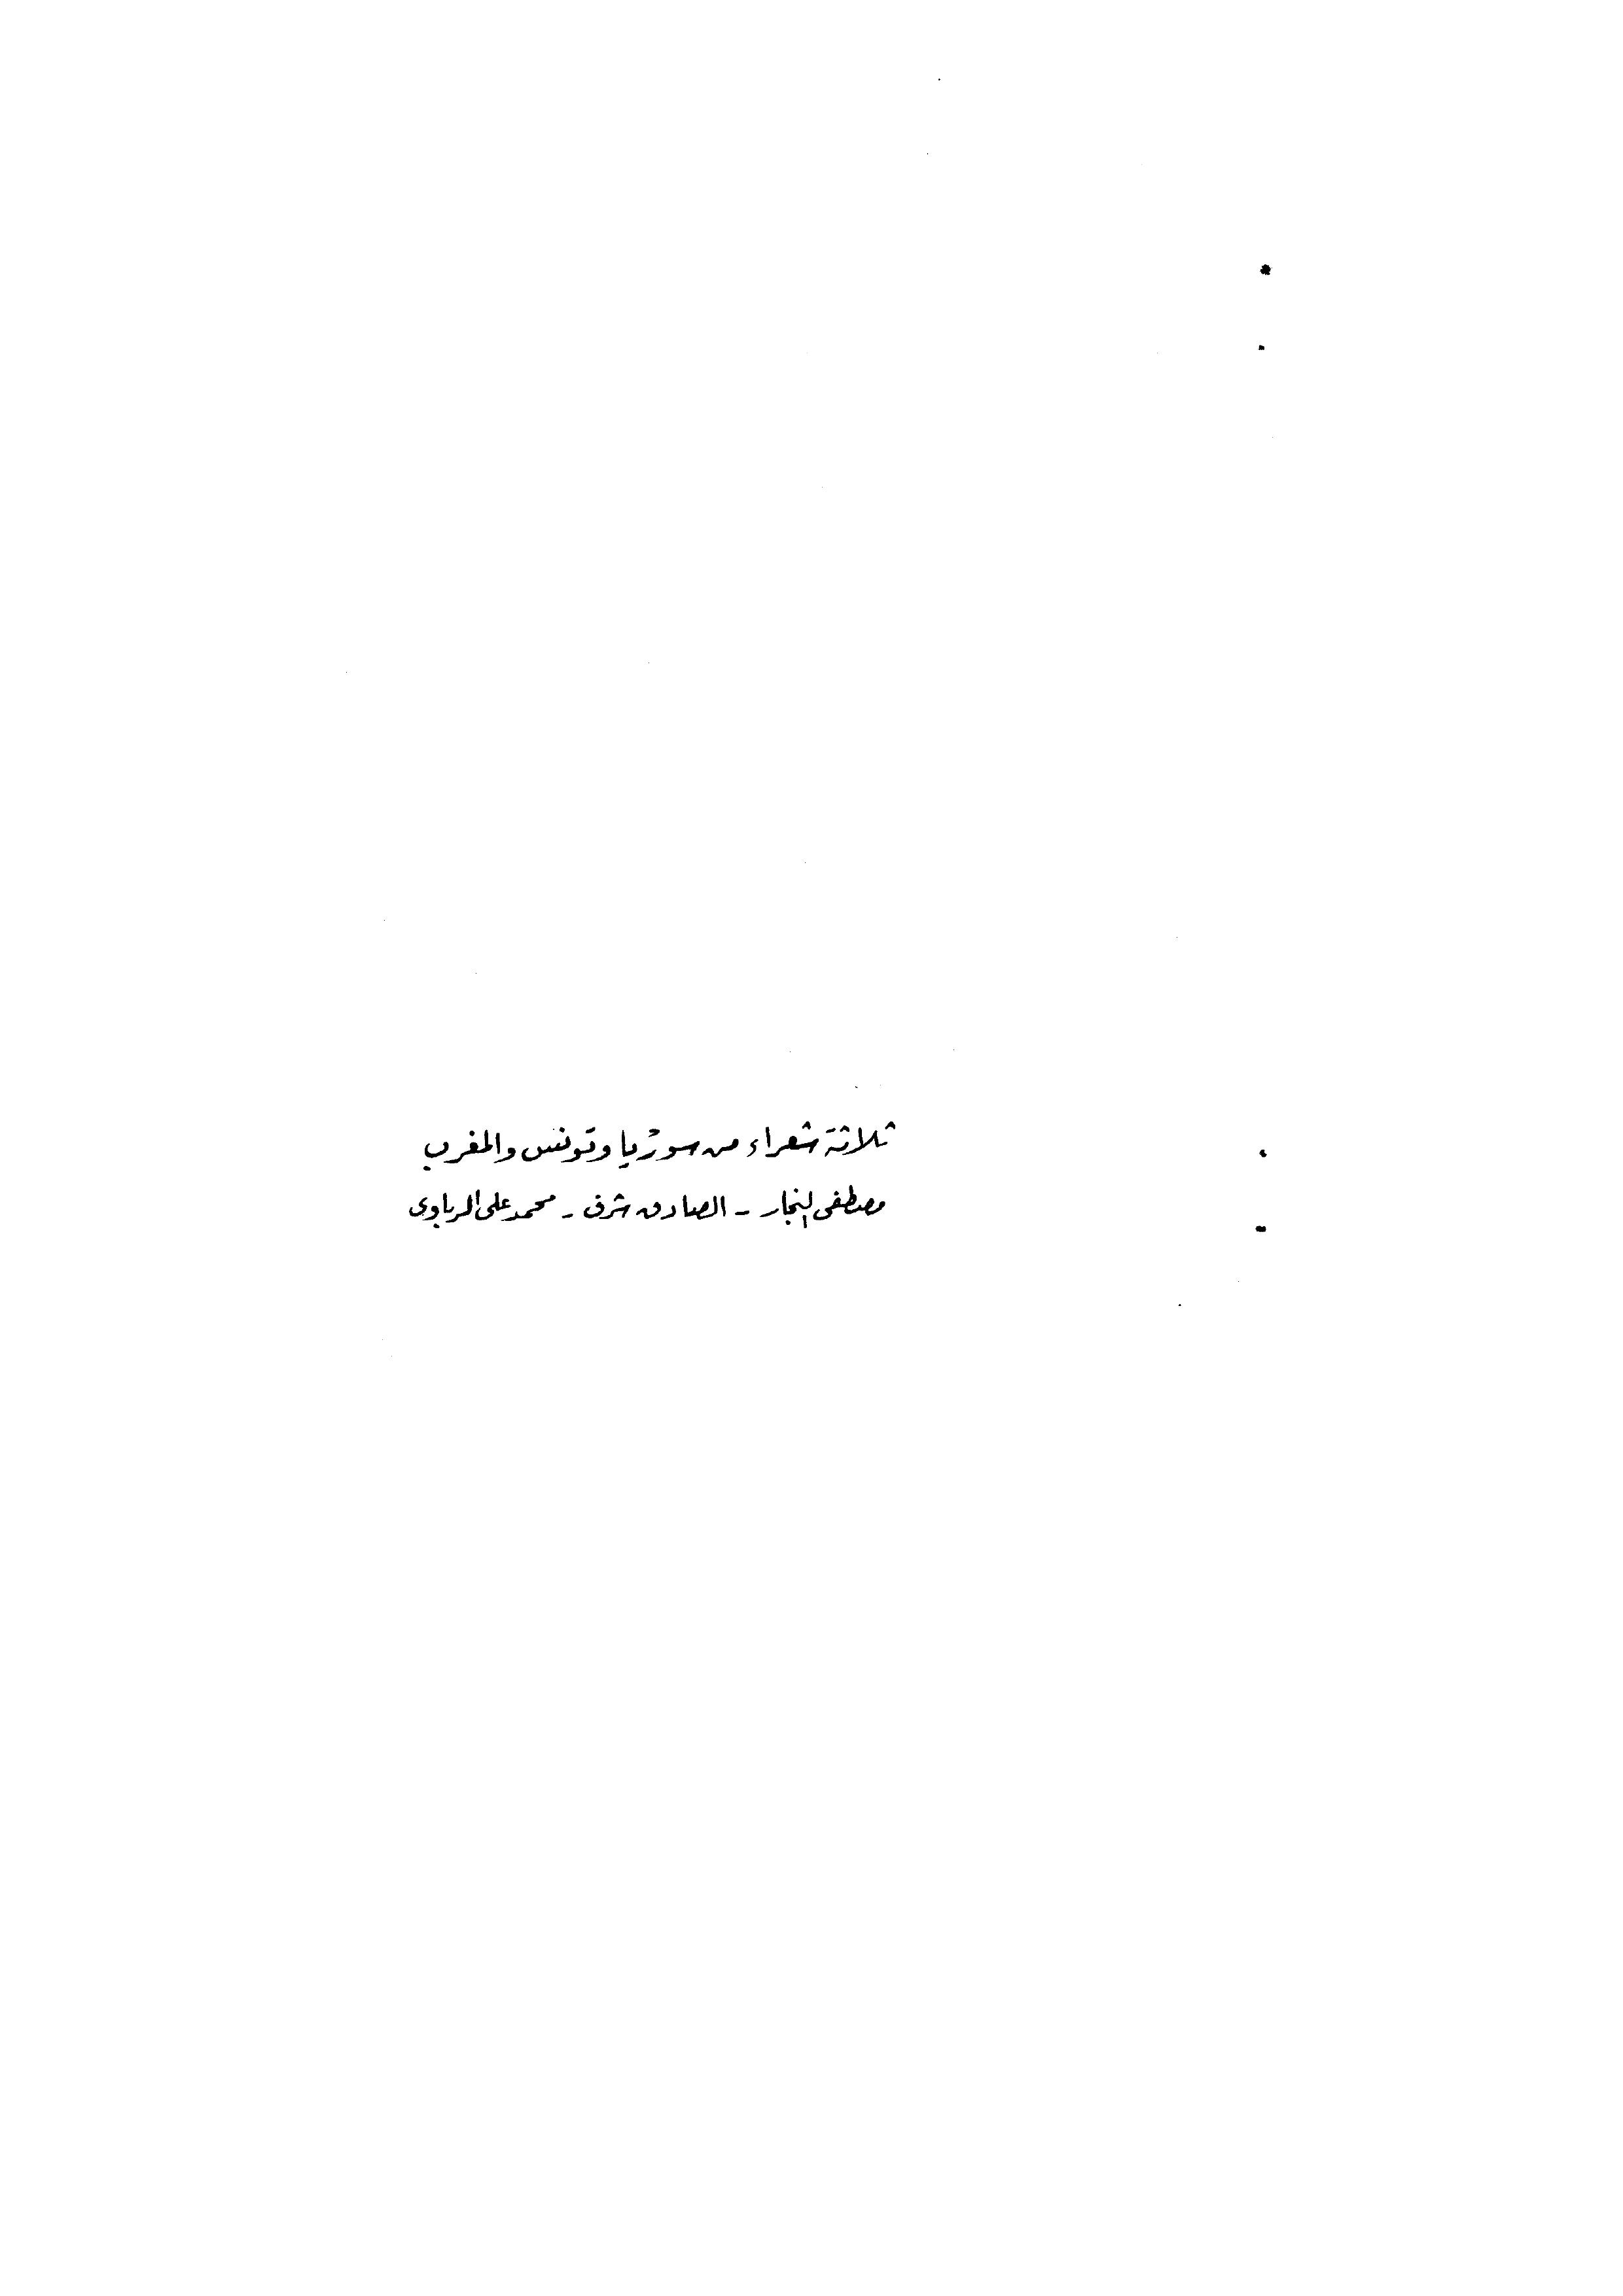 ثلاثة شعراء من سوريا وتونس والمغرب
مصطفى النجار - الصادق شرف - محمد على الرباوى